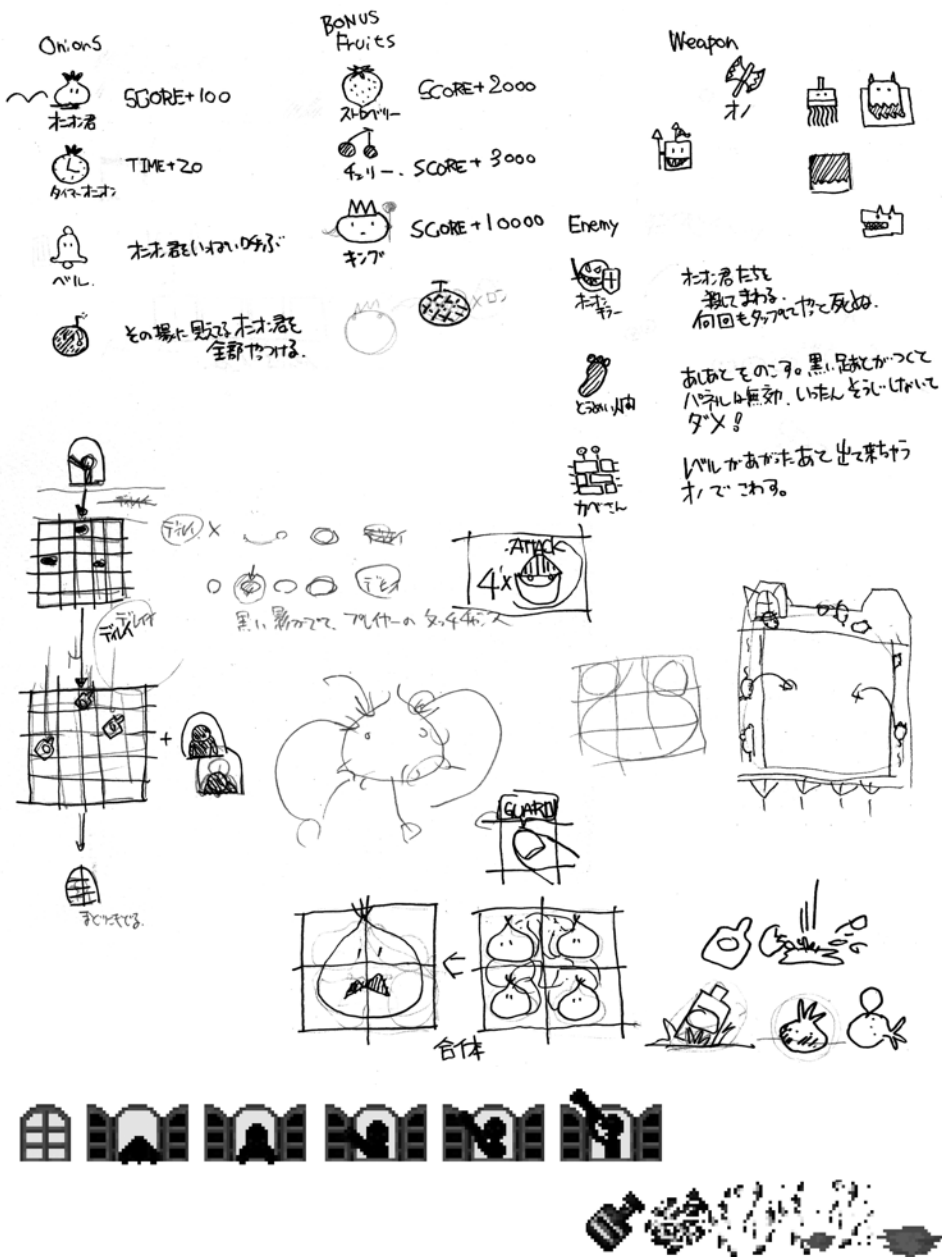 Onions
オニオン君
SCORE+100
タイマーオニオン
TIME+20
ベル
オニオン君をいっぱいよぶ
その場に見えてるオニオン君を
全部やっつける.
BONUS
Fruits
ストロベリー
SCORE+2000
チェリー.
SCORE+3000
キング
SCORE+10000
メロン
Weapon
オノ
Enemy
オニオン
キラー
オニオン君たちを
殺してまわる.
何回もタップしてやっと死ぬ.
とうめい人間
あしあとをのこす。黒い足あとがつくて
パネルは無効. いったんそうじしないて
ダメ!
カベさん
レベルがあがったあと出て来ちゃう
オノでこわす。
ディレイ
×
ディレイ
黒い影がでて、プレイヤーのタッチチャンス
ATTACK
4x
ディレイ
ディレイ
+
GUARD
合体